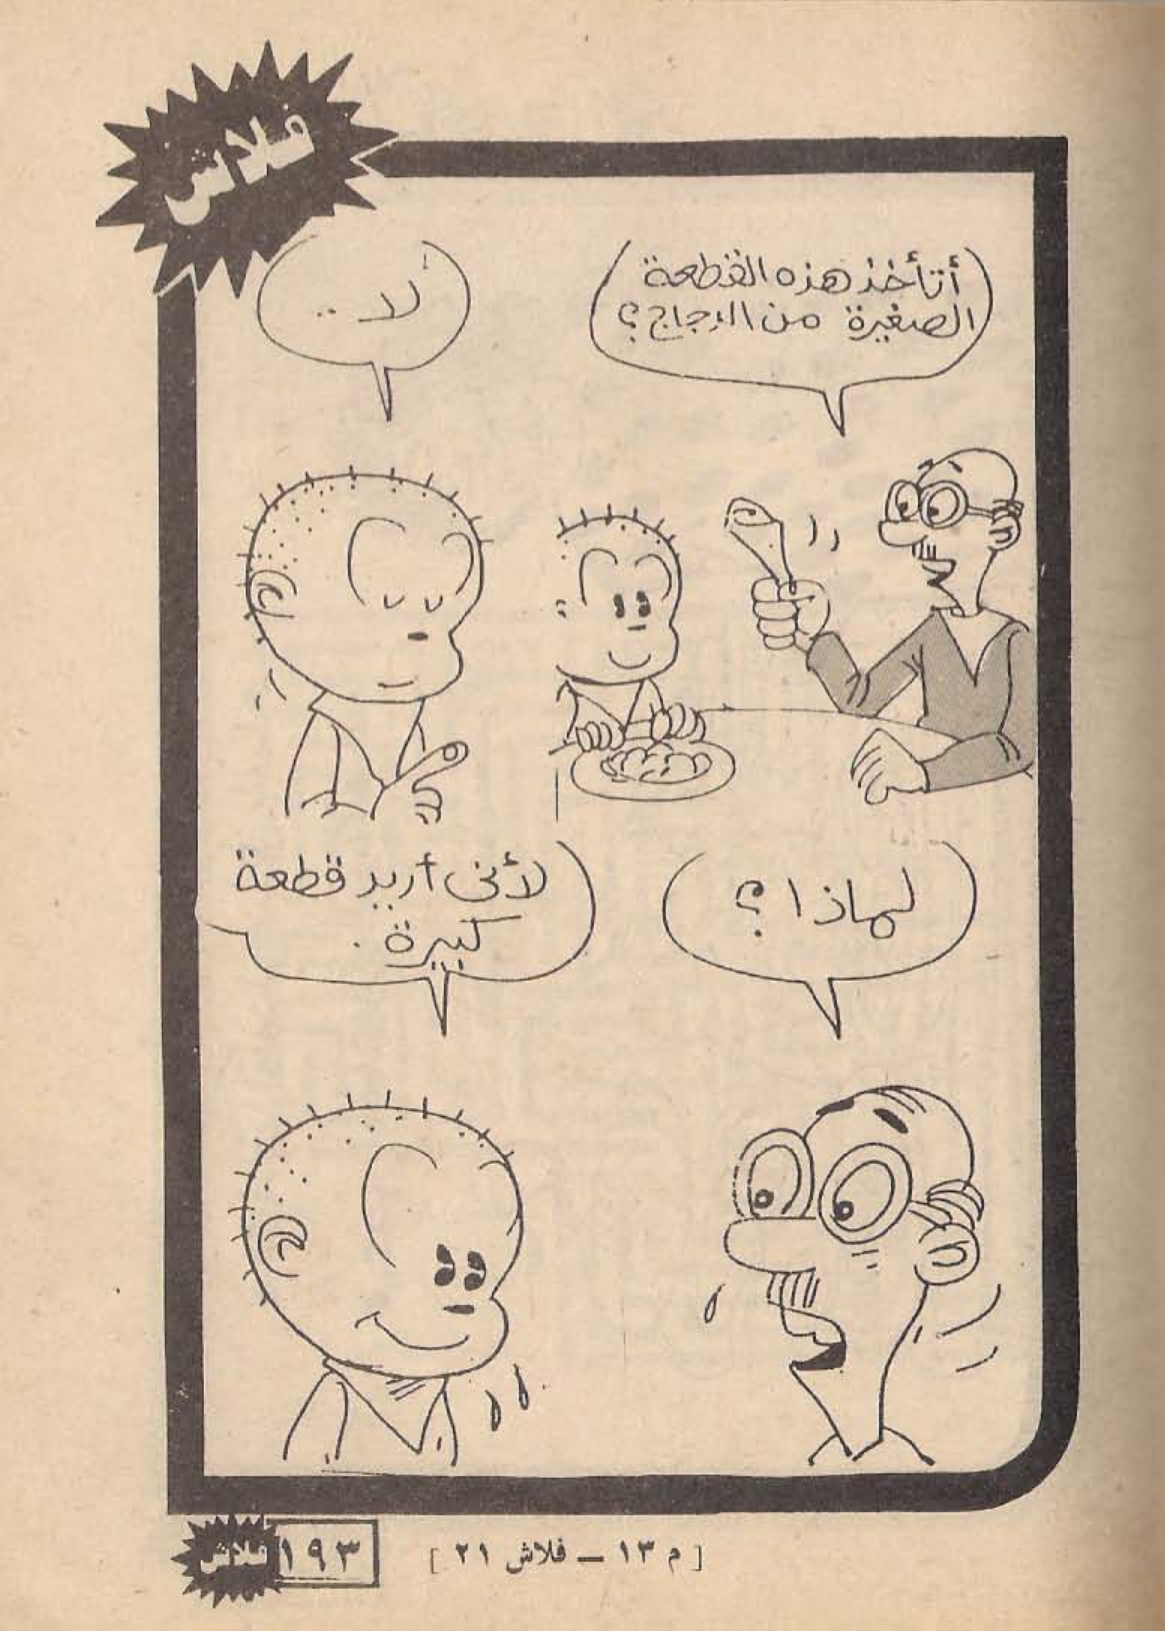 فلاش
أتأخذ هذه القطعة
الصغيرة من الدجاج؟
لا ..
لماذا؟
لأنى أريد قطعة
كبيرة .
[ م ١٣ – فلاش ٢١ ]
١٩٣
فلاش